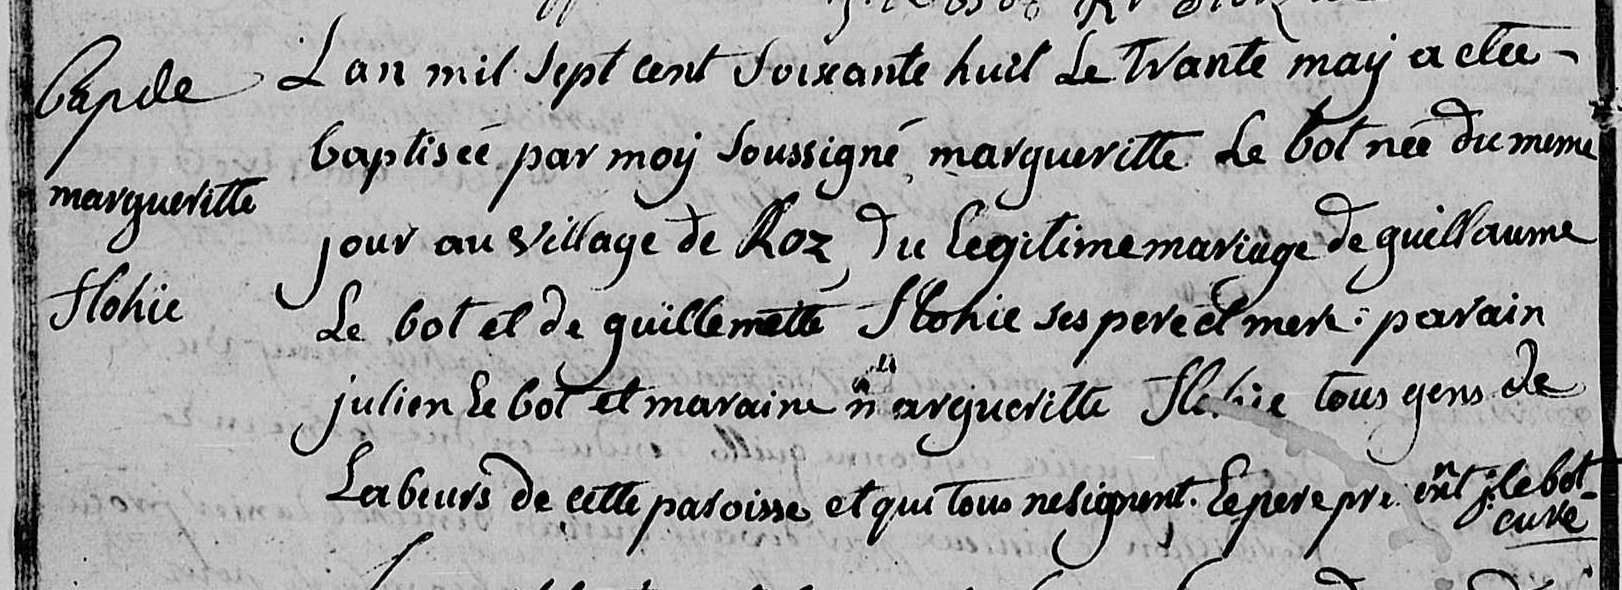 Bap de
margueritte
Flohic
Lan mil sept cent soixante huit Le trante may a etee
baptisée par moy soussigné margueritte Le bot née du meme
jour au village de Roz du Legitime mariage de guillaume
Le bot et de guillemette Flohic ses pere et mere parain
julien Le bot et maraine margueritte Flohic tous gens de
Labeurs de cette paroisse et qui tous ne signent. Le pere present j: le bot
curé